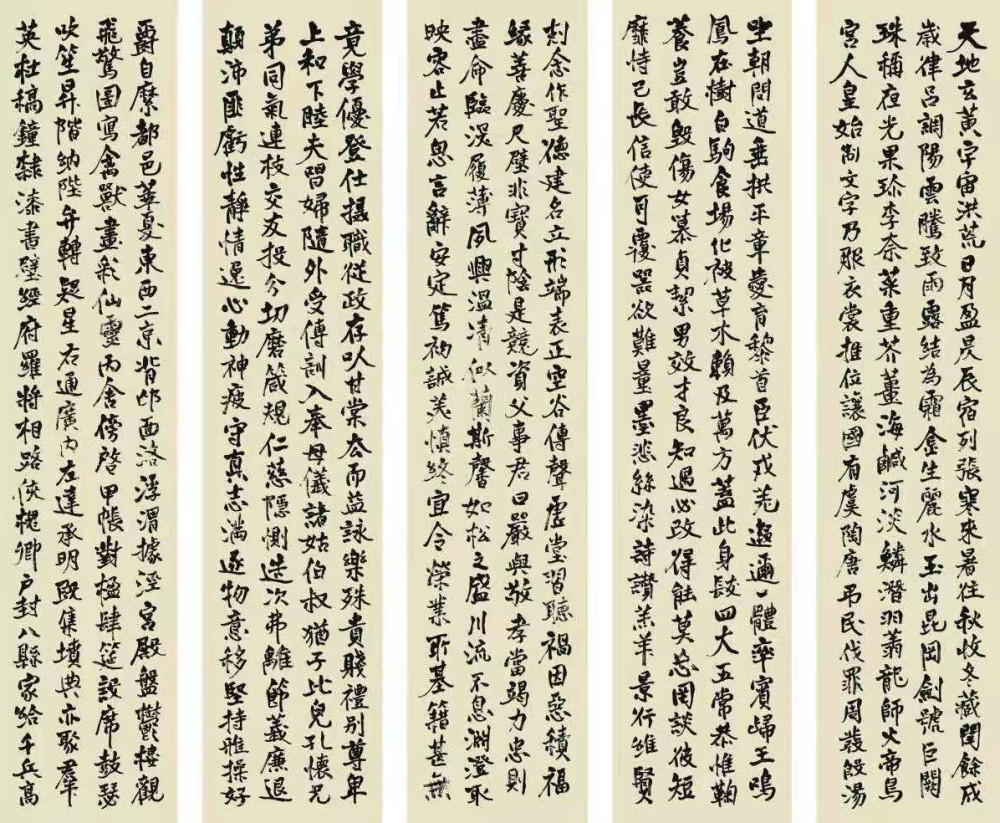 天地玄黃宇宙洪荒日月盈昃辰宿列張寒來暑往秋收冬藏閏餘成
歲律呂調陽雲騰致雨露結為霜金生麗水玉出昆岡劍號巨闕
珠稱夜光果珍李奈菜重芥薑海鹹河淡鱗潛羽翔龍師火帝鳥
官人皇始制文字乃服衣裳推位讓國有虞陶唐弔民伐罪周發殷湯
坐朝問道垂拱平章愛育黎首臣伏戎羌遐邇一體率賓歸王鳴
鳳在樹白駒食場化被草木賴及萬方蓋此身髮四大五常恭惟鞠
養豈敢毀傷女慕貞絜男效才良知過必改得能莫忘罔談彼短
靡恃己長信使可覆器欲難量墨悲絲染詩讚羔羊景行維賢
剋念作聖德建名立形端表正空谷傳聲虛堂習聽禍因惡積福
緣善慶尺璧非寶寸陰是競資父事君曰嚴與敬孝當竭力忠則
盡命臨深履薄夙興溫凊似蘭斯馨如松之盛川流不息淵澄取
映容止若思言辭安定篤初誠美慎終宜令榮業所基籍甚無
竟學優登仕攝職從政存以甘棠去而益詠樂殊貴賤禮別尊卑
上和下睦夫唱婦隨外受傅訓入奉母儀諸姑伯叔猶子比兒孔懷兄
弟同氣連枝交友投分切磨箴規仁慈隱惻造次弗離節義廉退
顛沛匪虧性靜情逸心動神疲守真志滿逐物意移堅持雅操好
爵自縻都邑華夏東西二京背邙面洛浮渭據涇宮殿盤鬱樓觀
飛驚圖寫禽獸畫彩仙靈丙舍傍啓甲帳對楹肆筵設席鼓瑟
吹笙昇階納陛弁轉疑星右通廣內左達承明既集墳典亦聚羣
英杜稿鐘隸漆書璧經府羅將相路俠槐卿戶封八縣家給千兵高